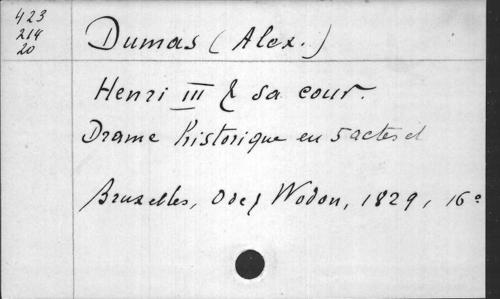 423
214
20
Dumas (Alex.)
Henri III & sa cour.
Drame historique en 5 actes et
Bruxelles, Ode & Wodon, 1829, 16°